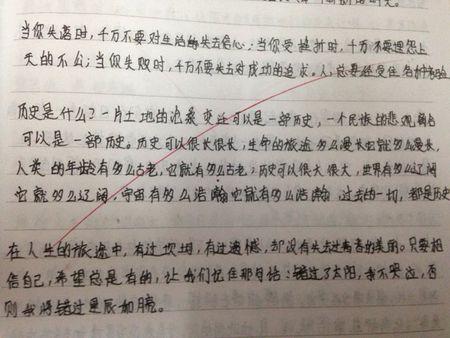 当你失落时,千万不要对生活失去信心;当你受挫折时,千万不要埋怨上
天的不公;当你失败时,千万不要失去对成功的追求。人,总要经受住各种考验
历史是什么?一片土地的沧桑变迁可以是一部历史,一个民族的悲观离合
可以是一部历史。历史可以很长很长,生命的旅途多么漫长它就多么漫长,
人类的年龄有多么古老,它就有多么古老;历史可以很大很大,世界有多么辽阔
它就多么辽阔,宇宙有多么浩瀚它就有多么浩瀚,过去的一切,都是历史
在人生的旅途中,有过坎坷,有过遗憾,却没有失去过青春的美丽。只要相
信自己,希望总是有的,让我们记住那句话:错过了太阳,我不哭泣,否
则我将错过星辰和月亮。